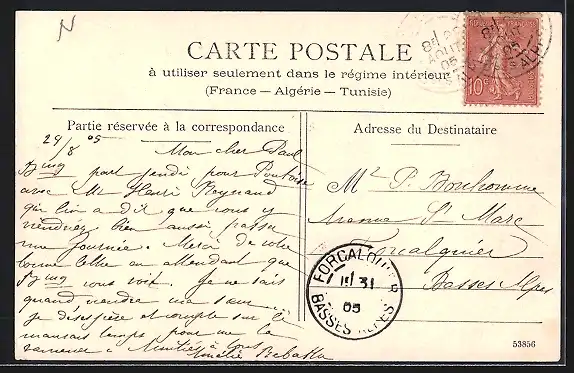 N
CARTE POSTALE
à utiliser seulement dans le régime intérieur
(France — Algérie — Tunisie)
10c
AOUT
05
Partie réservée à la correspondance
Adresse du Destinataire
29/8 05
Mon cher Paul
part jeudi pour
avec Mr Henri Reynaud
qui lui a dit que vous y
viendrez bien aussi passer
une journée. Merci de votre
bonne lettre en attendant que
vous voit. Je ne sais
quand viendra ma
je désespère et compte sur le
mauvais temps pour me la
ramener. Amitiés à tous
Amélie
Mr P. Bonhomme
Avenue St Marc
Forcalquier
Basses Alpes
FORCALQUIER
31
05
BASSES ALPES
53856